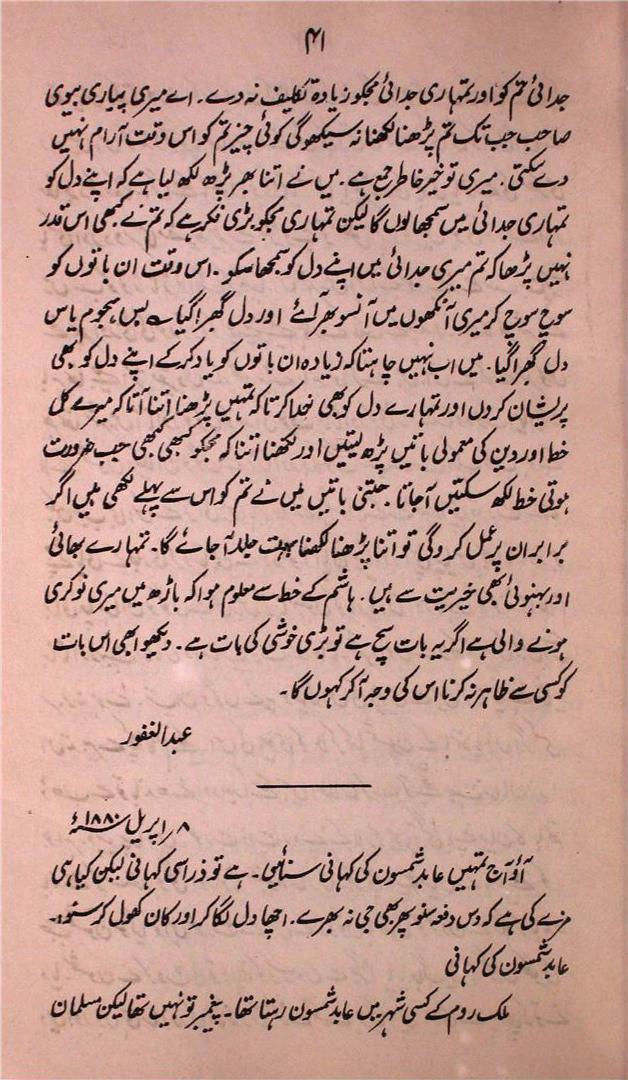 ۴۱
جدائی تم کو اور تمہاری جدائی مجکو زیادہ تکلیف نہ دے۔ اے میری پیاری بیوی
صاحب جب تک تم پڑھنا لکھنا نہ سیکھوگی کوئی چیز تم کو اس وقت آرام نہیں
دے سکتی۔ میری تو خیر خاطر جمع ہے۔ میں نے اتنا بھر پڑھ لکھ لیا ہے کہ اپنے دل کو
تمہاری جدائی میں سمجھا لوں گا لیکن تمہاری مجکو بڑی فکر ہے کہ تم نے کبھی اس قدر
نہیں پڑھا کہ تم میری جدائی میں اپنے دل کو سمجھا سکو۔ اس وقت ان باتوں کو
سوچ سوچ کر میری آنکھوں میں آنسو بھر آئے اور دل گھبرا گیا ؎ بس ہجوم یاس
دل گھبرا گیا۔ میں اب نہیں چاہتا کہ زیادہ ان باتوں کو یاد کر کے اپنے دل کو بھی
پریشان کروں اور تمہارے دل کو بھی خدا کرتا کہ تمہیں پڑھنا اتنا آتا کہ میرے کل
خط اور دین کی معمولی باتیں پڑھ لیتیں اور لکھنا اتنا کہ مجکو کبھی کبھی جب ضرورت
ہوتی خط لکھ سکتیں آ جاتا۔ جتنی باتیں میں نے تم کو اس سے پہلے لکھی ہیں اگر
برابر ان پر عمل کروگی تو اتنا پڑھنا لکھنا بہت جلد آ جائے گا۔ تمہارے بھائی
اور بہنوئی بھی خیریت سے ہیں۔ ہاشم کے خط سے معلوم ہوا کہ باڑھ میں میری نوکری
ہونے والی ہے اگر یہ بات سچ ہے تو بڑی خوشی کی بات ہے۔ دیکھو ابھی اس بات
کو کسی سے ظاہر نہ کرنا اس کی وجہ آ کر کہوں گا۔
عبد الغفور
۸ / اپریل ۱۸۸۰ء
آؤ آج تمہیں عابد شمسون کی کہانی سنائیں۔ ہے تو ذرا سی کہانی لیکن کیا ہی
مزے کی ہے کہ دس دفعہ سنو پھر بھی جی نہ بھرے۔ اچھا دل لگا کر اور کان کھول کر سنو۔
عابد شمسون کی کہانی
ملک روم کے کسی شہر میں عابد شمسون رہتا تھا۔ پیغمبر تو نہیں تھا لیکن مسلمان